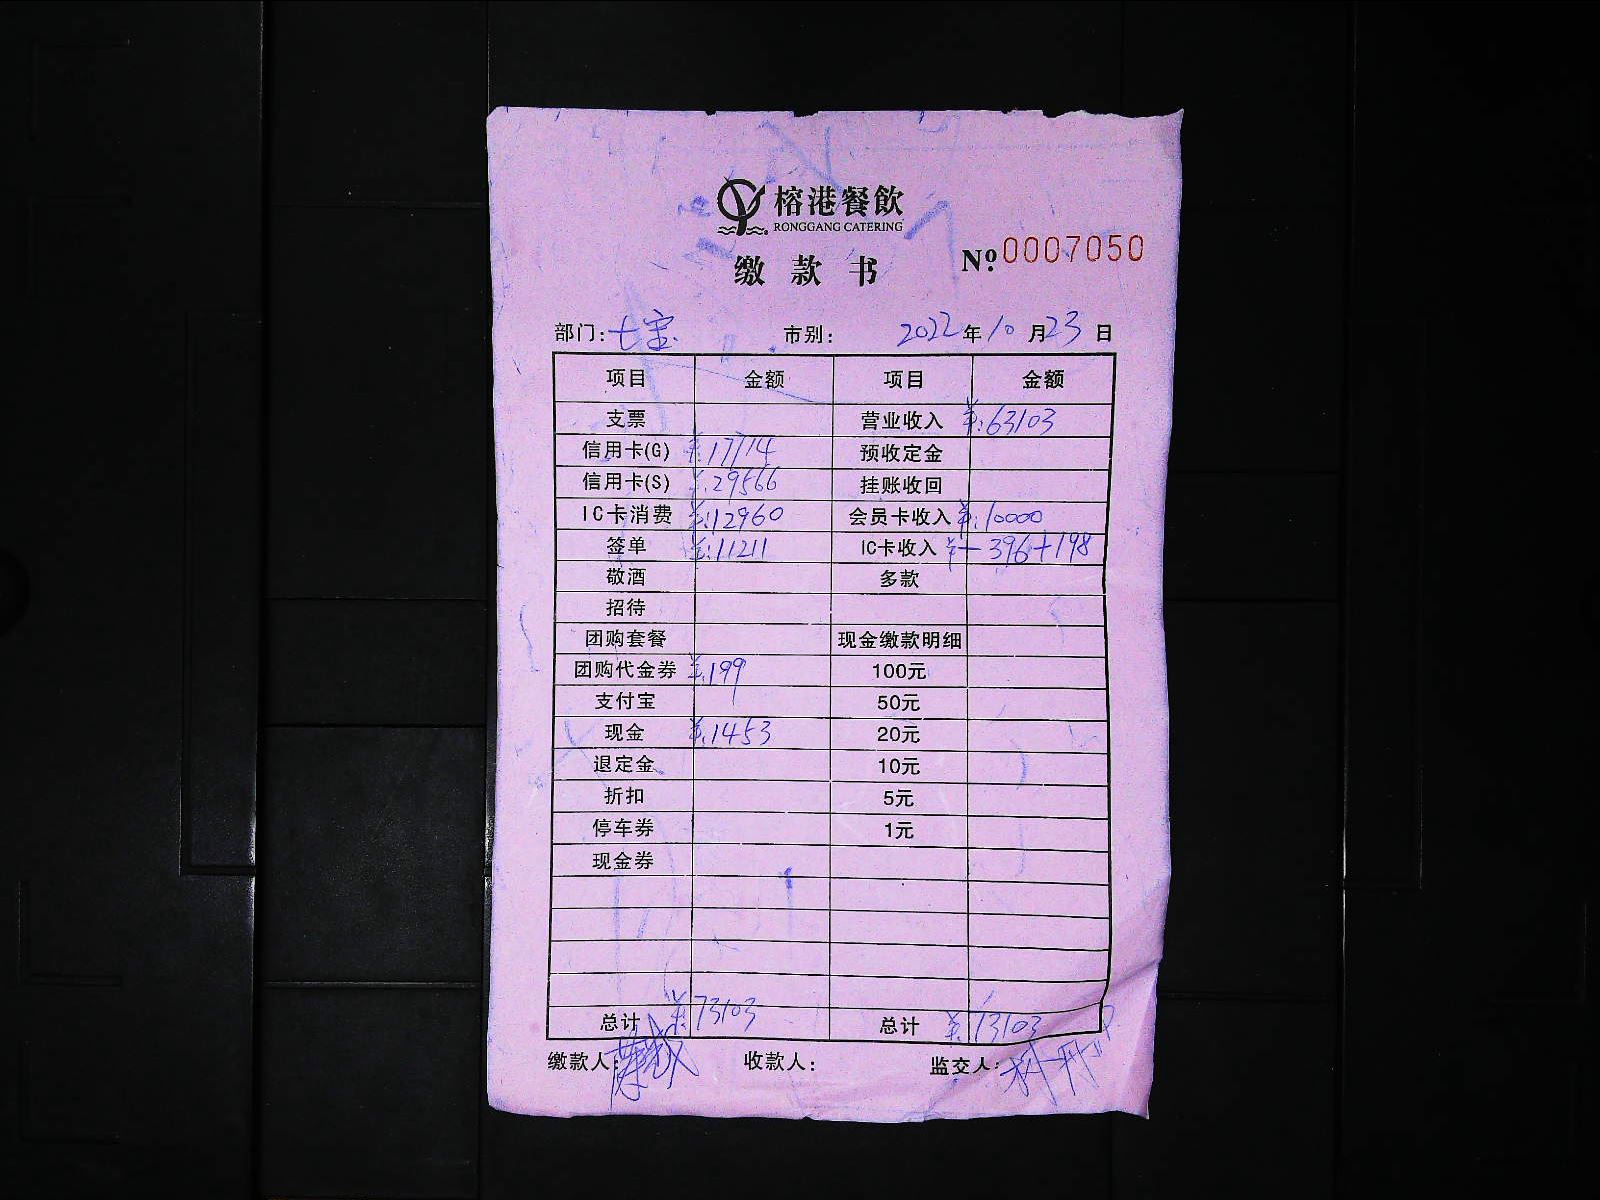 榕港餐飲
RONGGANG CATERING
缴款书 Nº: 0007050
部门: 七宝 市别: 2022年10月23日
项目 金额 项目 金额
支票 营业收入 ¥:63103
信用卡(G) ¥:17714 预收定金
信用卡(S) ¥:29566 挂账收回
IC卡消费 ¥:12960 会员卡收入 ¥:10000
签单 ¥:11211 IC卡收入 ¥-396+198
敬酒 多款
招待
团购套餐 现金缴款明细
团购代金券 ¥:199 100元
支付宝 50元
现金 ¥:1453 20元
退定金 10元
折扣 5元
停车券 1元
现金券
总计 ¥:73103 总计 ¥:73103
缴款人: 收款人: 监交人: